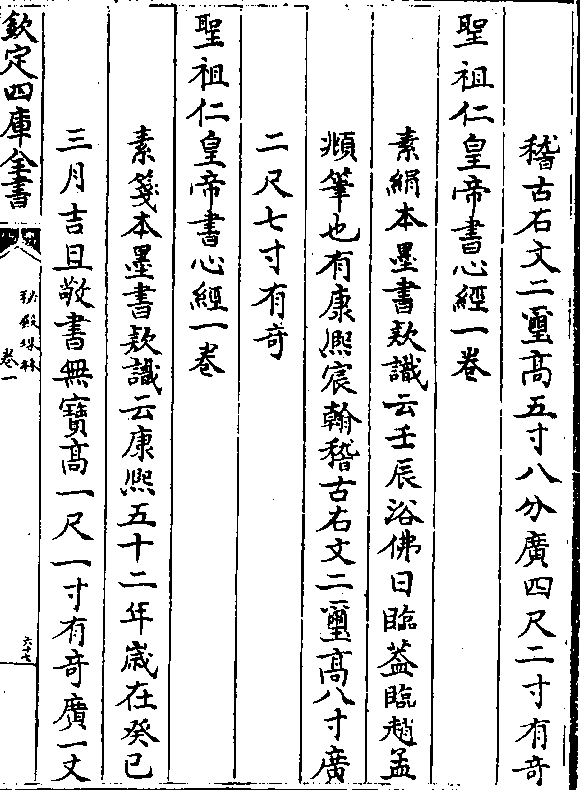 稽古右文二璽髙五寸八分廣四尺二寸有竒
聖祖仁皇帝書心經一卷
素絹本墨書欵識云壬辰浴佛日臨葢臨趙孟
頫筆也有康熙宸翰稽古右文二璽髙八寸廣
二尺七寸有竒
聖祖仁皇帝書心經一卷
素箋本墨書欵識云康熙五十二年嵗在癸已
三月吉旦敬書無寶髙一尺一寸有竒廣一丈
欽定四庫全書
秘殿珠林
卷一